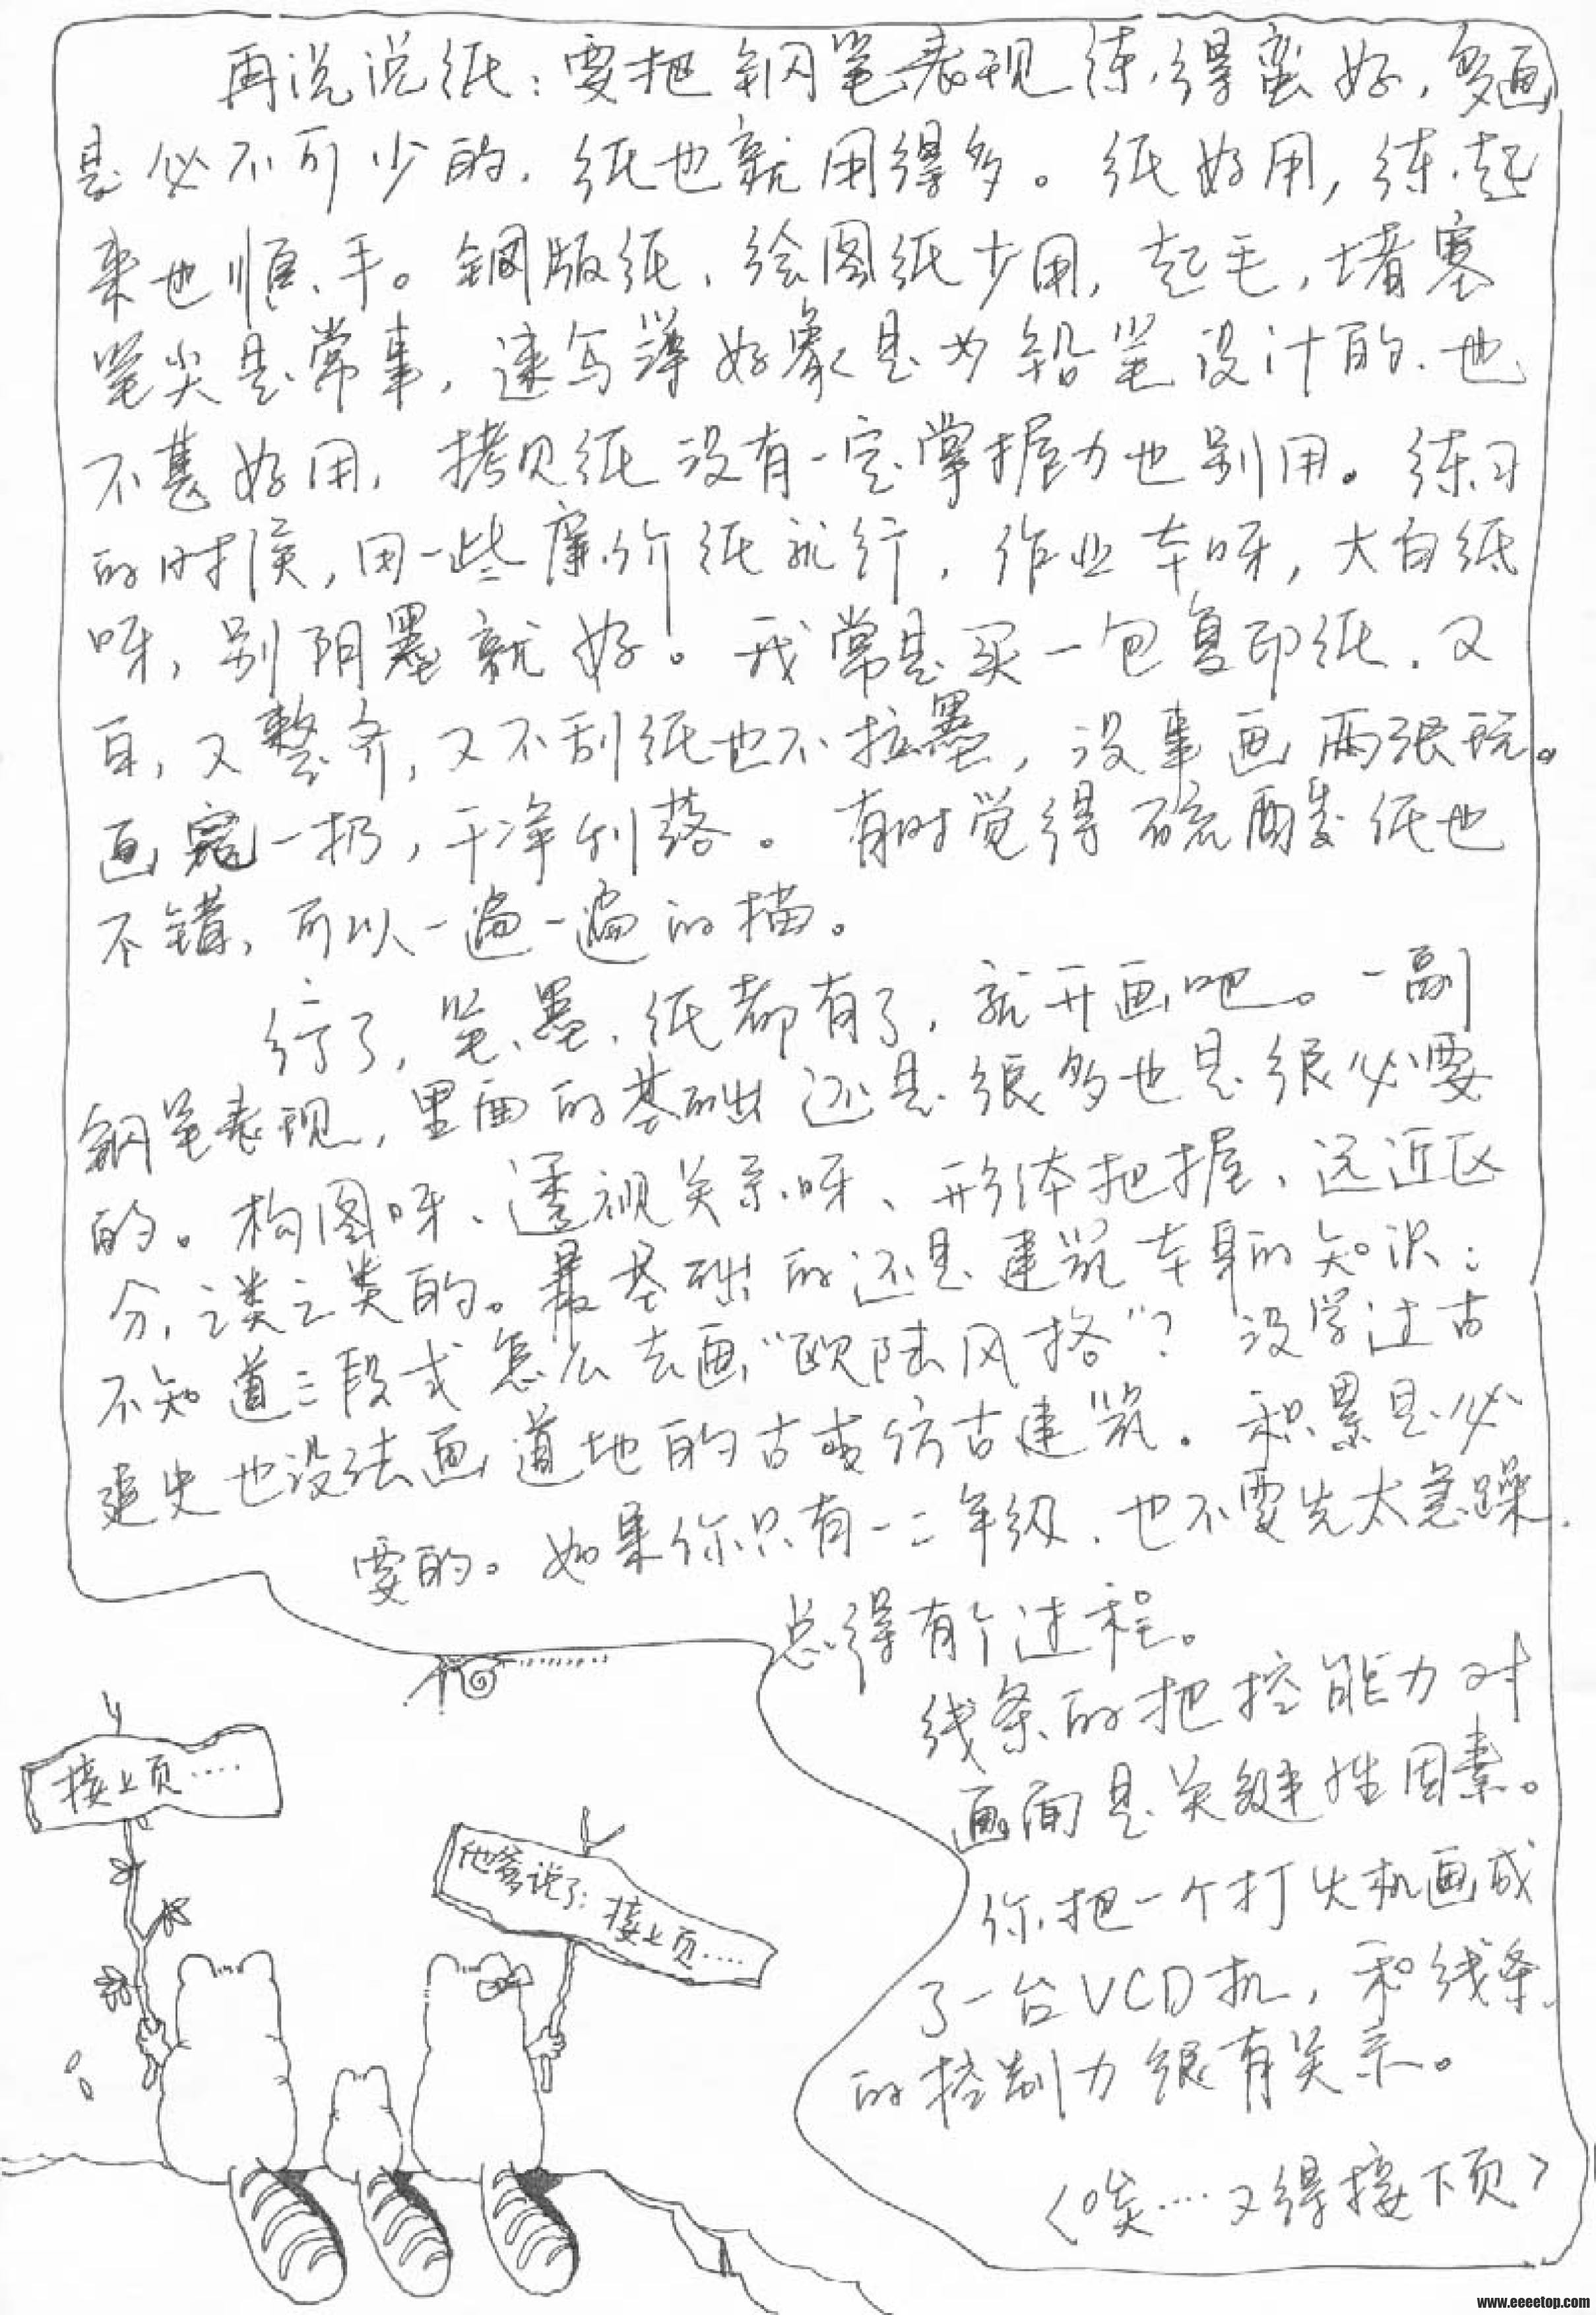 再说说纸：要把钢笔表现练得蛮好，多画
是必不可少的，纸也就用得多。纸好用，练起
来也顺手。铜版纸、绘图纸少用，起毛，堵塞
笔尖是常事，速写薄好象是为铅笔设计的、也
不甚好用，拷贝纸没有一定掌握力也别用。练习
的时候，用一些廉价纸就行，作业本呀，大白纸
呀，别阴墨就好。我常是买一包复印纸，又
白，又整齐，又不刮纸也不拉墨，没事画两张玩。
画完一扔，干净利落。有时觉得硫酸纸也
不错，可以一遍一遍的描。
行了，笔、墨、纸都有了，就开画吧。一副
钢笔表现，里面的基础还是很多也是很必要
的。构图呀、透视关系呀、形体把握、远近区
分，之类之类的。最基础的还是建筑本身的知识：
不知道三段式怎么去画“欧陆风格”？没学过古
建史也没法画道地的古或仿古建筑。积累是必
要的。如果你只有一二年级、也不要先太急躁，
总得有个过程。
线条的把控能力对
画面是关键性因素。
你把一个打火机画成
了一台VCD机，和线条
的控制力很有关系。
〈唉……又得接下页〉
接上页……
他爹说了：接上页……
www.eeeetop.com